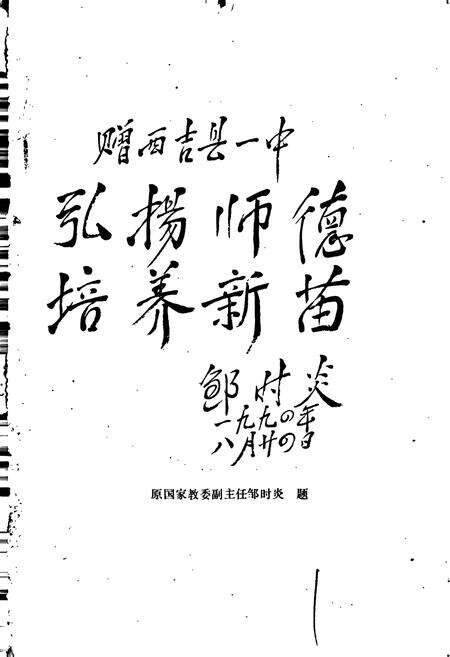 赠西吉县一中
弘揚师德
培养新苗
邹时炎
一九九〇年
八月廿四日
原国家教委副主任邹时炎 题